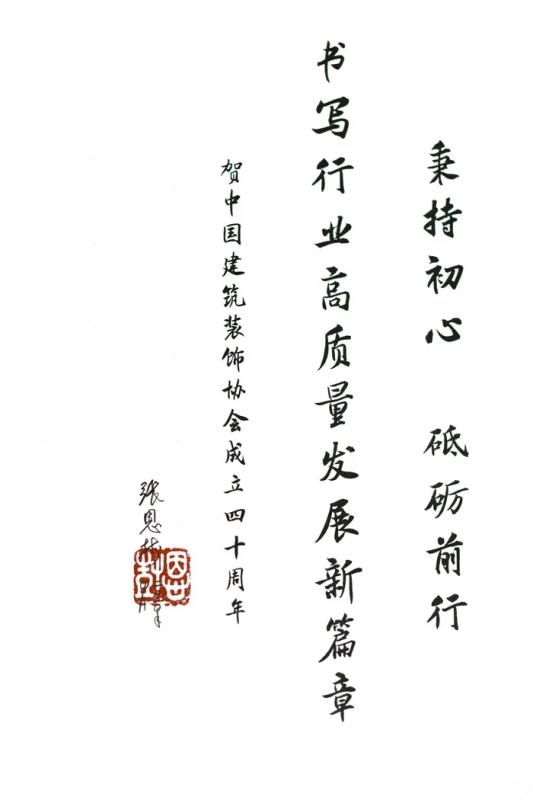 秉持初心 砥砺前行
书写行业高质量发展新篇章
贺中国建筑装饰协会成立四十周年
张恩